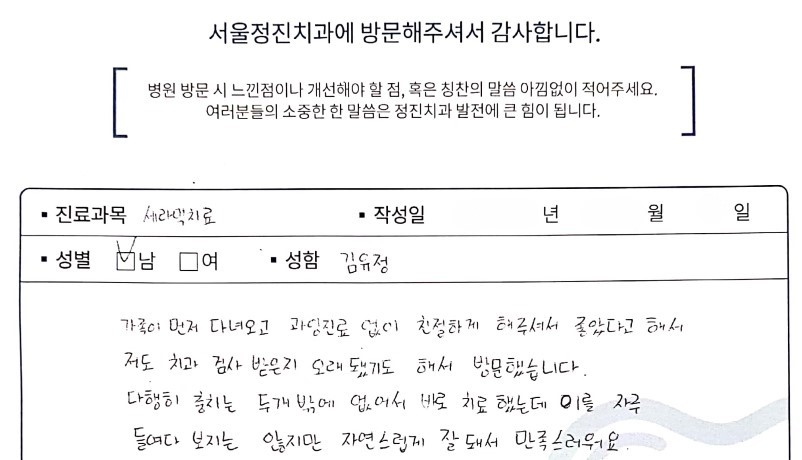 서울정진치과에 방문해주셔서 감사합니다.
병원 방문 시 느낀점이나 개선해야 할 점, 혹은 칭찬의 말씀 아낌없이 적어주세요.
여러분들의 소중한 한 말씀은 정진치과 발전에 큰 힘이 됩니다.
▪ 진료과목 세라믹치료 ▪ 작성일 년 월 일
▪ 성별 ☑남 □여 ▪ 성함 김유정
가족이 먼저 다녀오고 과잉진료 없이 친절하게 해주셔서 좋았다고 해서
저도 치과 검사 받은지 오래됐기도 해서 방문했습니다.
다행히 충치는 두개밖에 없어서 바로 치료했는데 이를 자주
들여다 보지는 않지만 자연스럽게 잘 돼서 만족스러워요.